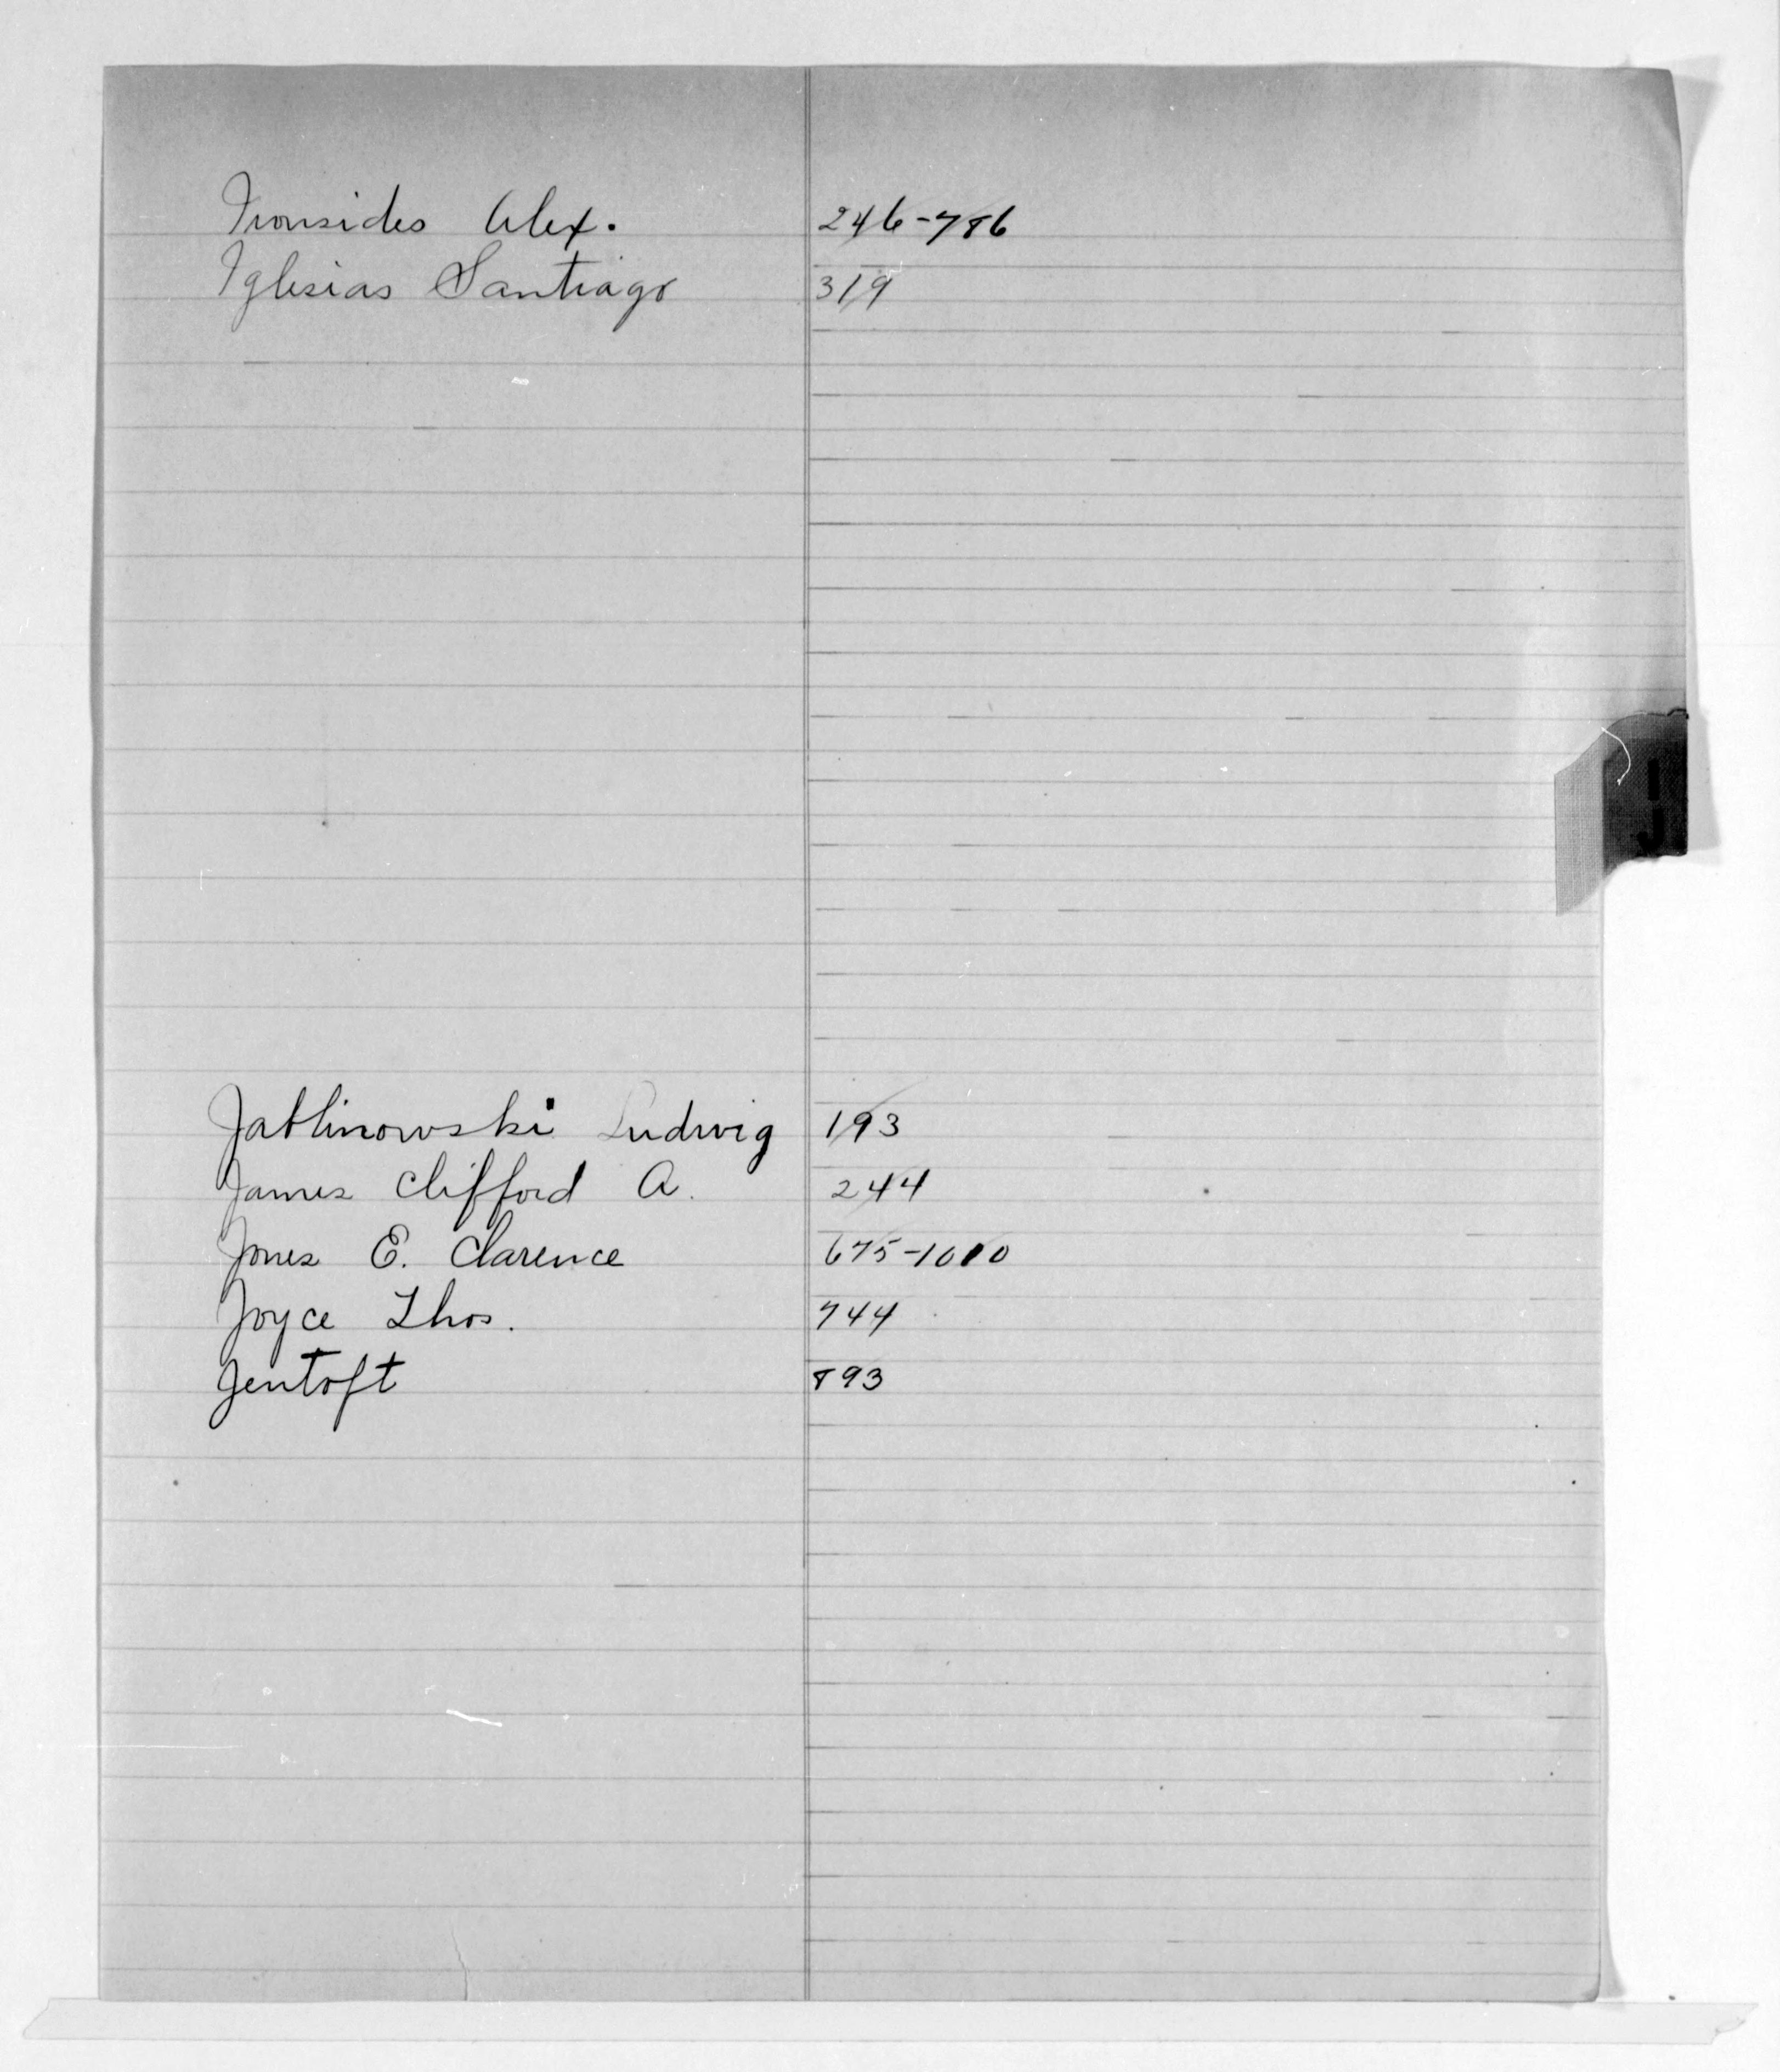 Ironsides Alex. 246-786
Iglesias Santiago 319
I
J
Jablinowski Ludwig 193
James Clifford A. 244
Jones E. Clarence 675-1010
Joyce Thos. 744
Jentoft 893